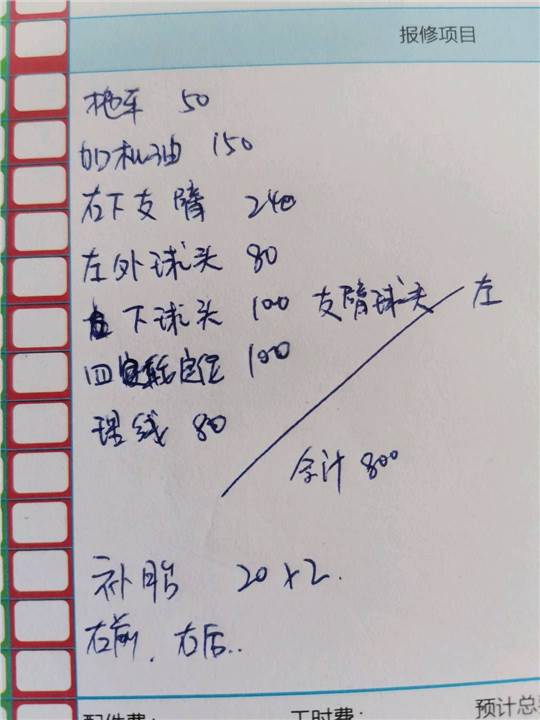 报修项目
拖车 50
加机油 150
右下支臂 240
左外球头 80
下球头 100 支臂球头 左
四轮定位 100
理线 80
合计 800
补胎 20×2.
右前、右后..
配件费: 工时费: 预计总